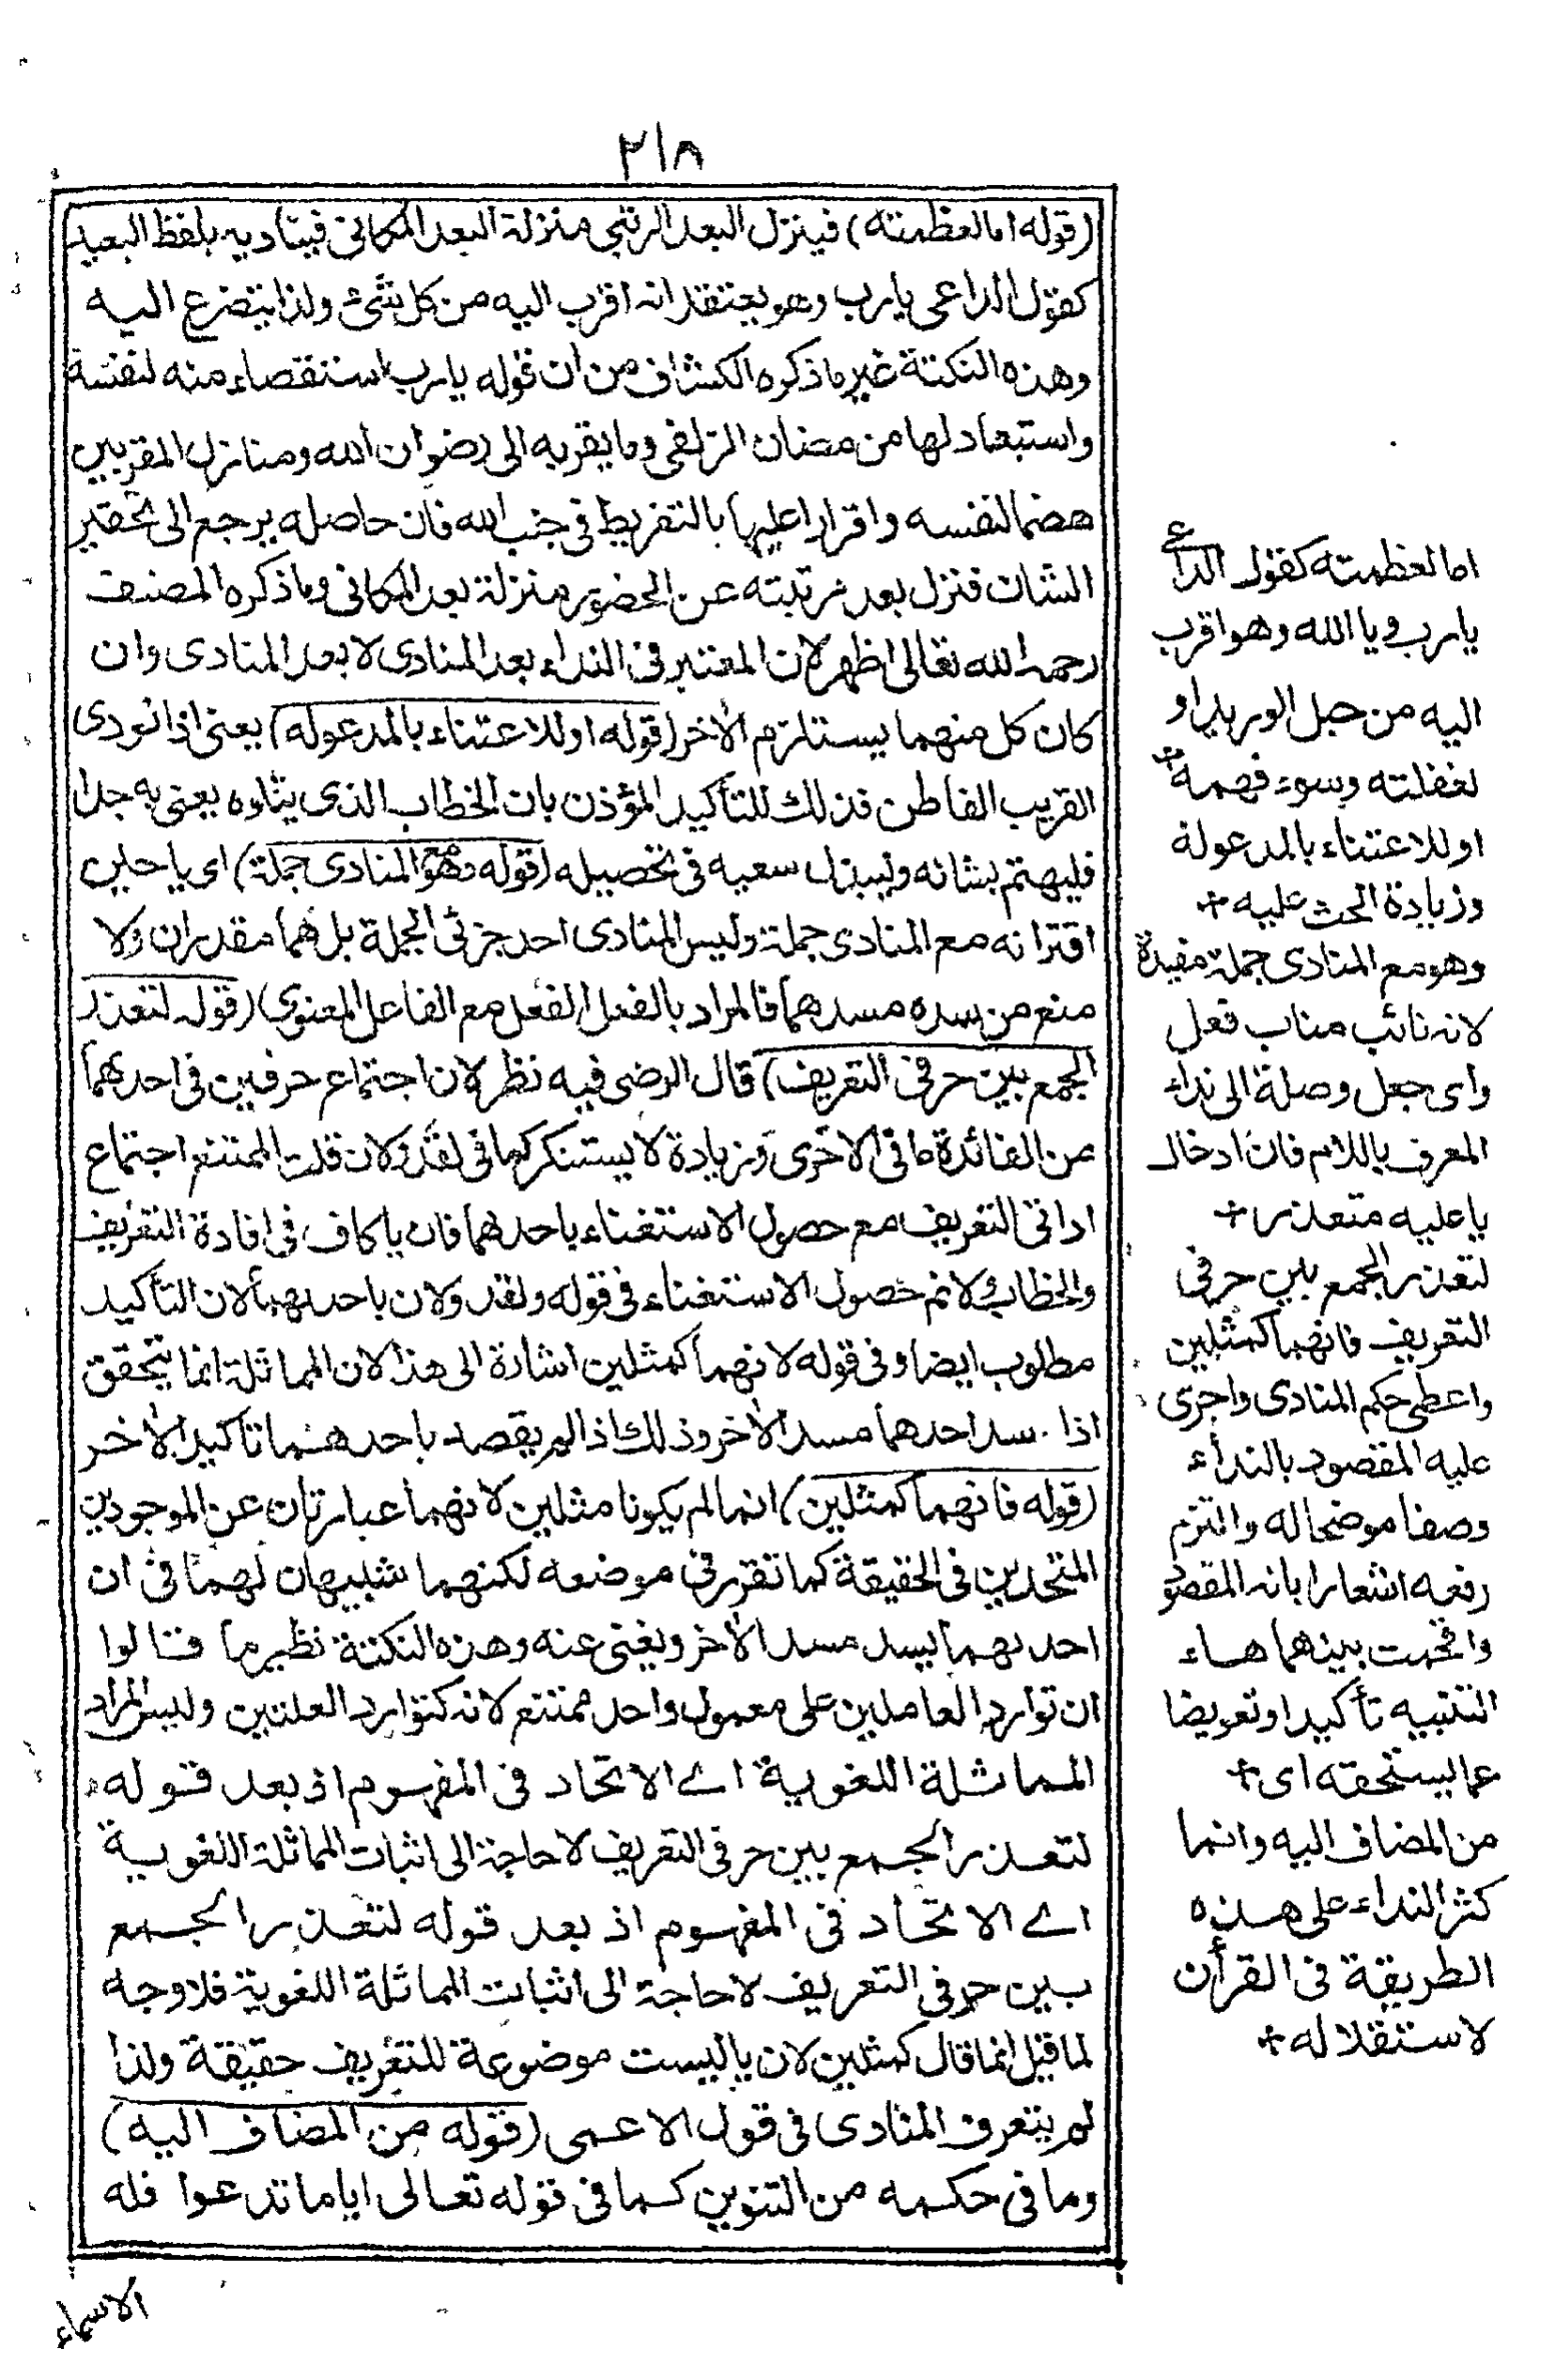 ٢١٨
(قوله اما لعظمته) فينزل البعد الرتبي منزلة البعد المكانى فيناديه بلفظ البعيد
كقول الداعى يا رب وهو يعتقد انه اقرب اليه من كل شئ ولذا يتضرع اليه
وهذه النكتة غير ما ذكره الكشاف من ان قوله يا رب استقصاء منه لنفسه
واستبعاد لها من مضان الزلفى وما يقربه الى رضوان الله ومنازل المقربين
هضما لنفسه واقرارا عليها بالتفريط فى جنب الله فان حاصله يرجع الى تحقير
الشان فنزل بعد مرتبته عن الحضور منزلة بعد المكانى وما ذكره المصنف
رحمه الله تعالى اظهر لان المعتبر فى النداء بعد المنادى لا بعد المنادى وان
كان كل منهما يستلزم الاخر (قوله او للاعتناء بالمدعو له) يعنى اذا نودى
القريب الفاطن فذلك للتأكيد المؤذن بان الخطاب الذى يتلوه يعنى به جدا
فليهتم بشانه وليبذل سعيه فى تحصيله (قوله وهو مع المنادى جملة) اى يا حين
اقترانه مع المنادى جملة وليس المنادى احد جزئى الجملة بل هما مقدران ولا
منع من سده مسدهما فالمراد بالفعل الفعل مع الفاعل المعنوى (قوله لتعذر
الجمع بين حرفى التعريف) قال الرضى فيه نظر لان اجتماع حرفين فى احدهما
من الفائدة ما فى الاخرى وزيادة لا يستنكر كما فى لقد ولان قلت الممتنع اجتماع
اداتى التعريف مع حصول الاستغناء باحدهما فان يا كاف فى افادة التعريف
والخطاب ولا نم حصول الاستغناء فى قوله ولقد ولان باحديهما لان التأكيد
مطلوب ايضا وفى قوله لانهما كمثلين اشارة الى هذا لان المماثلة انما يتحقق
اذا سد احدهما مسد الاخر وذلك اذا لم يقصد باحدهما تاكيد الاخر
(قوله فانهما كمثلين) انما لم يكونا مثلين لانهما عبارتان عن الموجودين
المتحدين فى الحقيقة كما تقرر فى موضعه لكنهما شبيهان لهما فى ان
احديهما يسد مسد الاخر ويغنى عنه وهذه النكتة نظير ما قالوا
ان توارد العاملين على معمول واحد ممتنع لانه كتوارد العلتين وليس المراد
المماثلة اللغوية اے الاتحاد فى المفهوم اذ بعد قوله
لتعذر الجمع بين حرفى التعريف لا حاجة الى اثبات المماثلة اللغوية
اے الاتحاد فى المفهوم اذ بعد قوله لتعذر الجمع
بين حرفى التعريف لا حاجة الى اثبات المماثلة اللغوية فلا وجه
لما قيل انما قال كمثلين لان يا ليست موضوعة للتعريف حقيقة ولذا
لم يتعرف المنادى فى قول الاعمى (قوله من المضاف اليه)
وما فى حكمه من التنوين كما فى قوله تعالى اياما تدعوا فله
الاسماء
اما لعظمته كقول الداعى
يا رب ويا الله وهو اقرب
اليه من حبل الوريد او
لغفلته وسوء فهمه +
او للاعتناء بالمدعو له
وزيادة الحث عليه +
وهو مع المنادى جملة مفيدة
لانه نائب مناب فعل
واى جعل وصلة الى نداء
المعرف باللام فان ادخال
يا عليه متعذر +
لتعذر الجمع بين حرفى
التعريف فانهما كمثلين
واعطى حكم المنادى واجرى
عليه المقصود بالنداء
وصفا موضحا له والتزم
رفعه اشعارا بانه المقصود
واقحمت بينهما هاء
التنبيه تأكيدا وتعويضا
عما يستحقه اى +
من المضاف اليه وانما
كثر النداء على هذه
الطريقة فى القرأن
لاستقلاله +